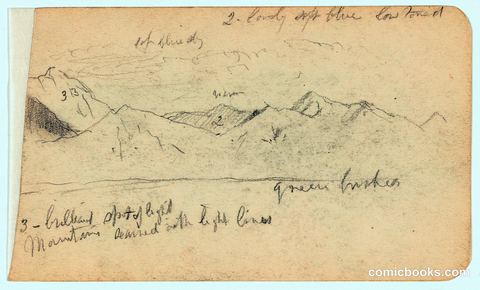 2. lovely soft blue low toned
soft blue sky
3 B
2
green bushes
3 - brilliant spot of light
Mountains veined with light lines
comicbooks.com